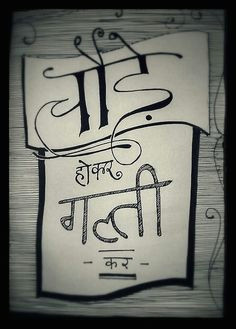 चौड़े
होकर
गल्ती
- कर -